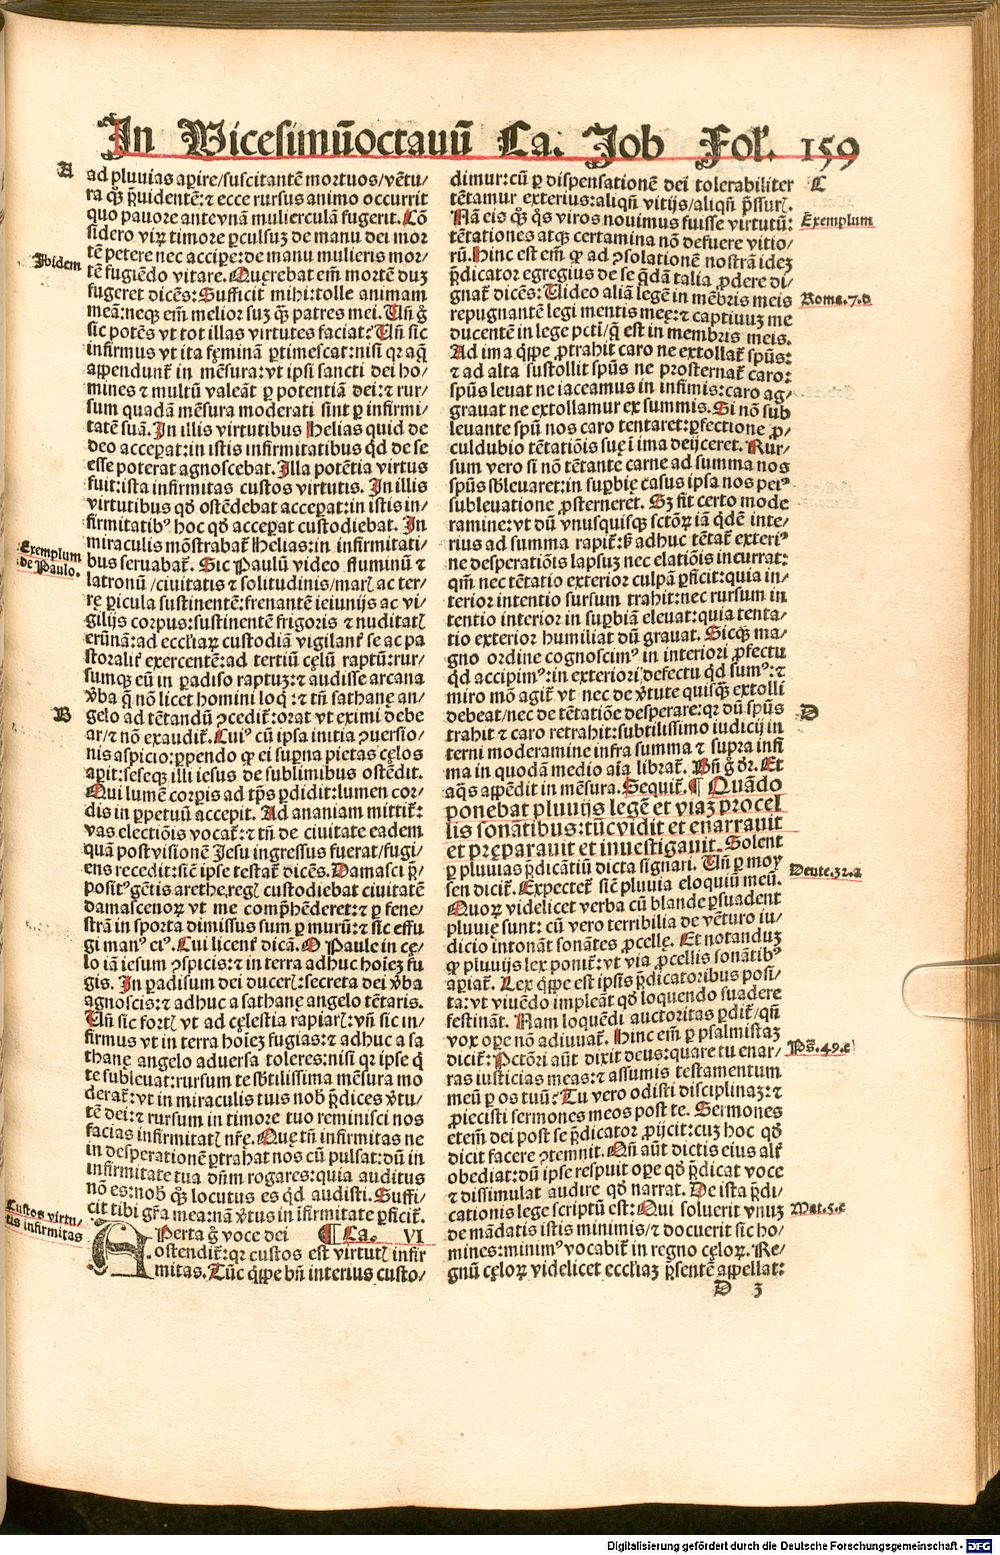 In Vicesimūoctauū Ca. Job Fol. 159
A
ad pluuias aꝑire/suscitantē mortuos/vētu/
ra qꝫ p̄uidentē:⁊ ecce rursus animo occurrit
quo pauore ante vnā mulierculā fugerit. Cō
sidero viꝝ timore ꝑculsuꝫ de manu dei mor
tē petere nec accipe:de manu mulieris mor/
Ibidem
tē fugiēdo vitare. Querebat em̄ mortē duꝫ
fugeret dicēs: Sufficit mihi:tolle animam
meā:neqꝫ em̄ melior suꝫ qꝫ patres mei. Un̄ g̊
sic potēs vt tot illas virtutes faciat? Un̄ sic
infirmus vt ita fęminā ꝑtimescat:nisi qꝛ aq̄
appendunt̄ in mēsura:vt ipsi sancti dei ho/
mines ⁊ multū valeāt ꝑ potentiā dei:⁊ rur/
sum quadā mēsura moderati sint ꝑ infirmi/
tatē suā. In illis virtutibus Helias quid de
deo acceꝑat:in istis infirmitatibus qͥd de se
esse poterat agnoscebat. Illa potētia virtus
fuit:ista infirmitas custos virtutis. In illis
virtutibus qđ ostēdebat acceꝑat:in istis in/
firmitatibꝰ hoc qđ acceꝑat custodiebat. In
miraculis mōstrabat̄ Helias:in infirmitati/
Exemplum
de Paulo.
bus seruabat̄. Sic Paulū video fluminū ⁊
latronū /ciuitatis ⁊ solitudinis/marꝭ ac ter/
rę ꝑicula sustinentē:frenantē ieiunijs ac vi/
gilijs corpus:sustinentē frigoris ⁊ nuditatꝭ
erūnā:ad eccliaꝝ custodiā vigilant̄ se ac pa
storalit̄ exercentē:ad tertiū cęlū raptū:rur/
sumqꝫ eū in ꝑadiso raptuꝫ:⁊ audisse arcana
v̄ba q̄ nō licet homini loqͥ:⁊ tn̄ sathanę an/
B
gelo ad tētandū ꝯcedit̄:orat vt eximi debe
at/⁊ nō exaudit̄. Cuiꝰ cū ipsa initia ꝯuersio/
nis aspicio:ꝑpendo ꝙ ei suꝑna pietas cęlos
aꝑit:seseqꝫ illi iesus de sublimibus ostēdit.
Qui lumē corꝑis ad tp̄s ꝑdidit:lumen cor/
dis in ꝑpetuū accepit. Ad ananiam mittit̄:
vas electiōis vocat̄:⁊ tn̄ de ciuitate eadem
quā post visionē Jesu ingressus fuerat/fugi/
ens recedit:sic̄ ipse testat̄ dicēs. Damasci p̄/
positꝰ gētis arethe,regꝭ custodiebat ciuitatē
damascenoꝝ vt me comp̄hēderet:⁊ ꝑ fene/
strā in sporta dimissus sum ꝑ murū:⁊ sic effu
gi manꝰ eiꝰ. Cui licent̄ dicā. O Paule in cę/
lo iā iesum ꝯspicis:⁊ in terra adhuc hoieꝫ fu
gis. In ꝑadisum dei ducerꝭ:secreta dei v̄ba
agnoscis:⁊ adhuc a sathanę angelo tētaris.
Un̄ sic fortꝭ vt ad cęlestia rapiarꝭ:vn̄ sic in/
firmus vt in terra hoieꝫ fugias:⁊ adhuc a sa
thanę angelo aduersa toleres:nisi qꝛ ipse q̄
te subleuat:rursum te sƀtilissima mēsura mo
derat̄:vt in miraculis tuis nob̄ p̄dices v̄tu/
tē dei:⁊ rursum in timore tuo reminisci nos
facias infirmitatꝭ nr̄ę. Quę tn̄ infirmitas ne
in desperationē ꝑtrahat nos cū pulsat:dū in
infirmitate tua dn̄m rogares:quia auditus
nō es:nob̄ qꝫ locutus es qͥd audisti. Suffi/
cit tibi gr̄a mea:nā v̄tus in īfirmitate ꝑficit̄.
Custos virtu/
tis infirmitas
APerta g̊ voce dei ¶ Ca. VI
ostendit̄:qꝛ custos est virtutꝭ infir
mitas. Tūc qͥppe bn̄ interius custo/
C
dimur:cū ꝑ dispensationē dei tolerabiliter
tētamur exterius:aliqn̄ vitijs/aliqn̄ p̄ssurꝭ.
Exemplum
Nā eis qꝫ qͦs viros nouimus fuisse virtutū:
tētationes atqꝫ certamina nō defuere vitio/
rū. Hinc est em̄ ꝙ ad ꝯsolationē nostrā ideꝫ
p̄dicator egregius de se q̄dā talia ꝓdere di/
Roma.7.d
gnat̄ dicēs: Uideo aliā legē in mēbris meis
repugnantē legi mentis meę:⁊ captiuuꝫ me
ducentē in lege pcti/q̄ est in membris meis.
Ad ima qͥppe ꝓtrahit caro ne extollat̄ spūs:
⁊ ad alta sustollit spūs ne prosternat̄ caro:
spūs leuat ne iaceamus in infimis:caro ag/
grauat ne extollamur ex summis. Si nō sub
leuante spū nos caro tentaret:ꝑfectione ꝓ/
culdubio tētatiōis suę ī ima deijceret. Rur/
sum vero si nō tētante carne ad summa nos
spūs sƀleuaret:in suꝑbię casus ipsa nos peiꝰ
subleuatione ꝓsterneret. Sꝫ fit certo mode
ramine:vt dū vnusquisqꝫ sctōꝝ iā qͥdē inte/
rius ad summa rapit̄:ꝫ adhuc tētat̄ exteriꝰ
ne desperatiōis lapsuꝫ nec elatiōis incurrat:
qm̄ nec tētatio exterior culpā ꝑficit:quia in/
terior intentio sursum trahit:nec rursum in
tentio interior in suꝑbiā eleuat:quia tenta/
tio exterior humiliat dū grauat. Sicqꝫ ma/
gno ordine cognoscimꝰ in interiori ꝓfectu
qͥd accipimꝰ:in exteriori defectu qͥd sumꝰ:⁊
miro mō agit̄ vt nec de v̄tute quisqꝫ extolli
D
debeat/nec de tētatiōe desperare:qꝛ dū spūs
trahit ⁊ caro retrahit:subtilissimo iudicij in
terni moderamine infra summa ⁊ supra infi
ma in quodā medio aīa librat̄. Bn̄ g̊ dr̄. Et
aq̄s appēdit in mēsura. Sequit̄. ¶ Quādo
ponebat pluuijs legē et viaꝫ procel
lis sonātibus:tūc vidit et enarrauit
et pręparauit et inuestigauit. Solent
ꝑ pluuias p̄dicātiū dicta signari. Un̄ ꝑ moy
Deute.32.a
sen dicit̄. Expectet̄ sic̄ pluuia eloquiū meū.
Quoꝝ videlicet verba cū blande ꝑsuadent
pluuię sunt: cū vero terribilia de vēturo iu/
dicio intonāt sonātes ꝓcellę. Et notanduꝫ
ꝙ pluuijs lex ponit̄:vt via ꝓcellis sonātibꝰ
aꝑiat̄. Lex qͥppe est ipsis p̄dicatoribus posi/
ta:vt viuēdo impleāt qđ loquendo suadere
festināt. Nam loquēdi auctoritas ꝑdit̄/qn̄
vox oꝑe nō adiuuat̄. Hinc em̄ ꝑ psalmistaꝫ
Ps̄.49.c
dicit̄: Pctōri aūt dixit deus:quare tu enar/
ras iusticias meas:⁊ assumis testamentum
meū ꝑ os tuū? Tu vero odisti disciplinaꝫ:⁊
ꝓiecisti sermones meos post te. Sermones
etem̄ dei post se p̄dicator ꝓijcit:cuꝫ hoc qđ
dicit facere ꝯtemnit. Qn̄ aūt dictis eius alt̄
obediat:dū ipse respuit oꝑe qđ p̄dicat voce
⁊ dissimulat audire qđ narrat. De ista p̄di/
Mat.5.c
cationis lege scriptū est: Qui soluerit vnuꝫ
de mādatis istis minimis/⁊ docuerit sic ho/
mines:minimꝰ vocabit̄ in regno cęloꝝ. Re/
gnū cęloꝝ videlicet eccliaꝫ p̄sentē appellat:
D 3
Digitalisierung gefördert durch die Deutsche Forschungsgemeinschaft - DFG